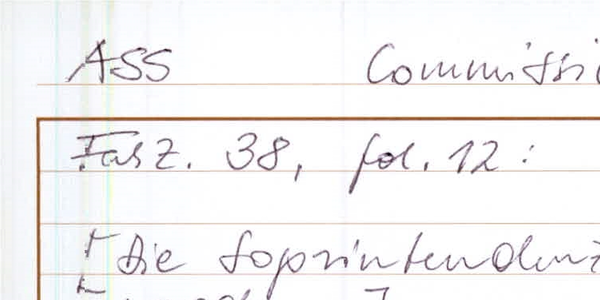 ASS Commissi
Fasz. 38, fol. 12:
die Soprintendenz